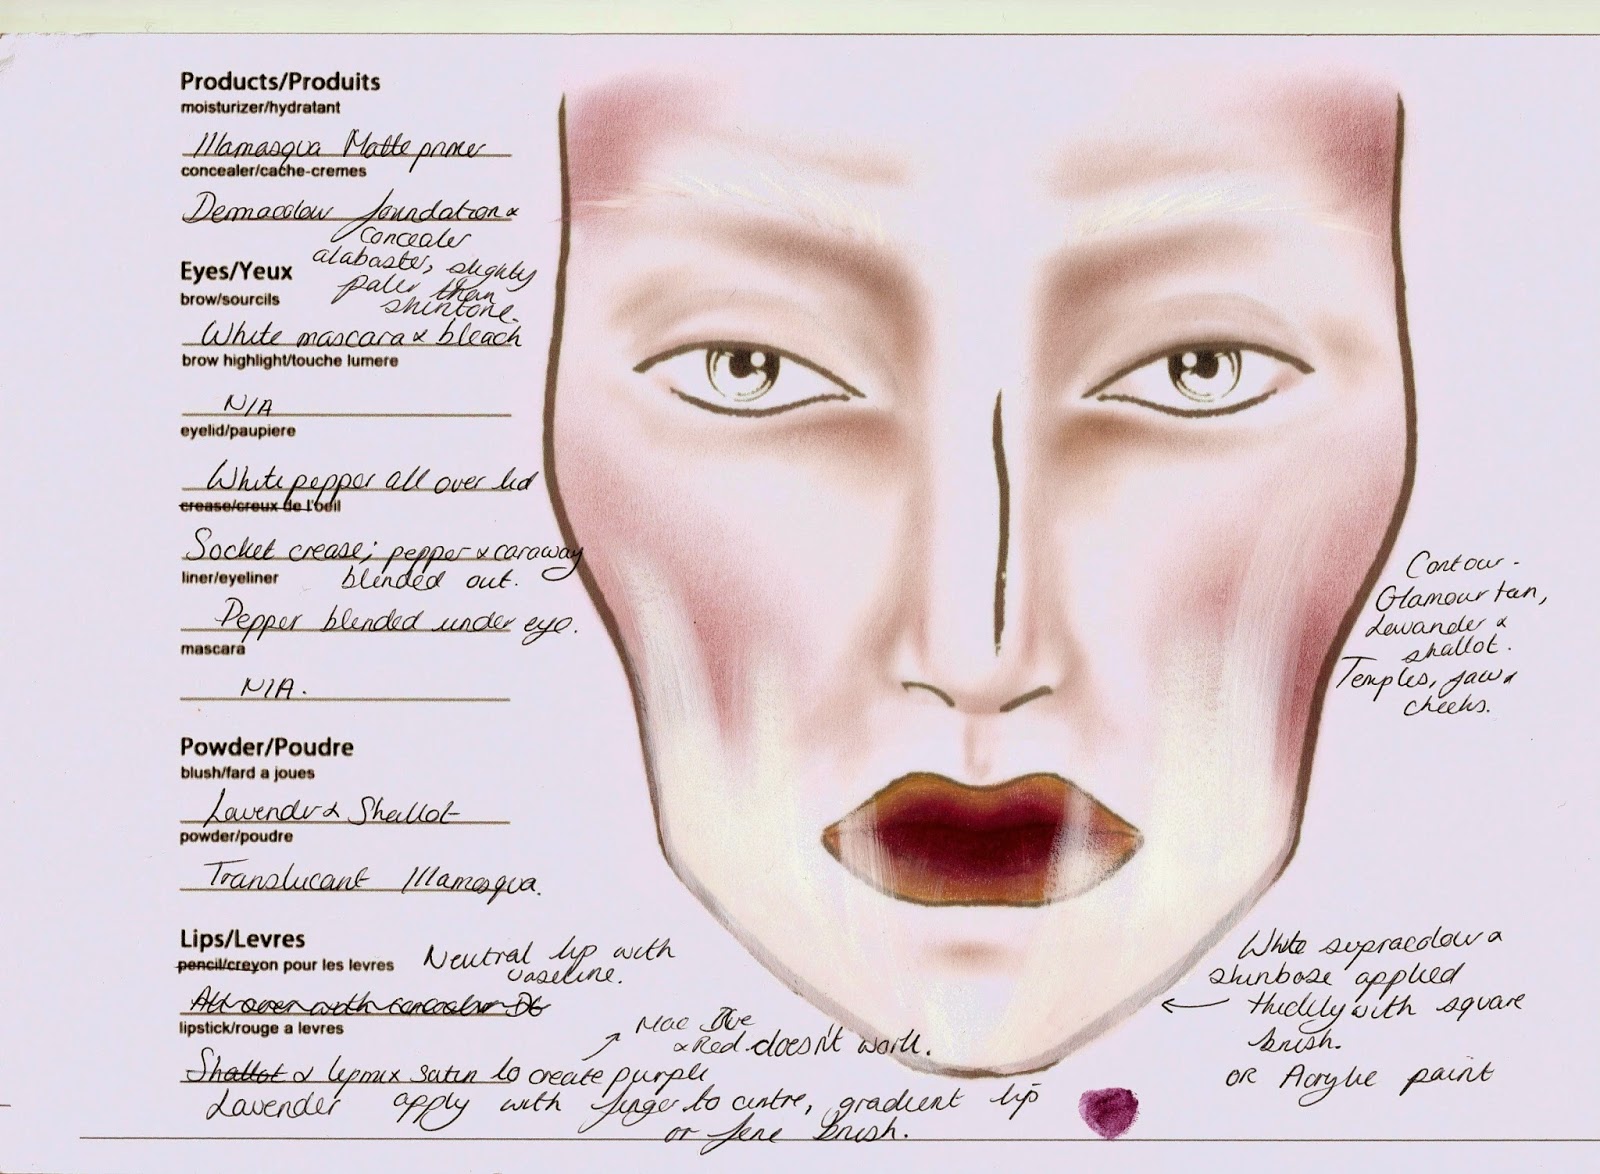 Products/Produits
moisturizer/hydratant
Illamasqua Matte primer
concealer/cache-cremes
Dermacolour foundation &
concealer
alabaster, slightly
paler than
skintone.
Eyes/Yeux
brow/sourcils
White mascara & bleach
brow highlight/touche lumere
N/A
eyelid/paupiere
White pepper all over lid
crease/creux de l'oeil
Socket crease; pepper & caraway
blended out.
liner/eyeliner
Pepper blended under eye.
mascara
N/A.
Powder/Poudre
blush/fard a joues
Lavender & Shallot
powder/poudre
Translucant Illamasqua.
Lips/Levres
pencil/creyon pour les levres
Neutral lip with
vaseline.
All over with concealer
lipstick/rouge a levres
Mac
& Red doesn't work.
Shallot & lipmix satin to create purple
Lavender apply with finger to centre, gradient lip
or fine brush.
Contour -
Glamour tan,
Lavander &
shallot.
Temples, jaw &
cheeks.
White supracolour &
skinbase applied
thickly with square
brush.
OR Acrylic paint